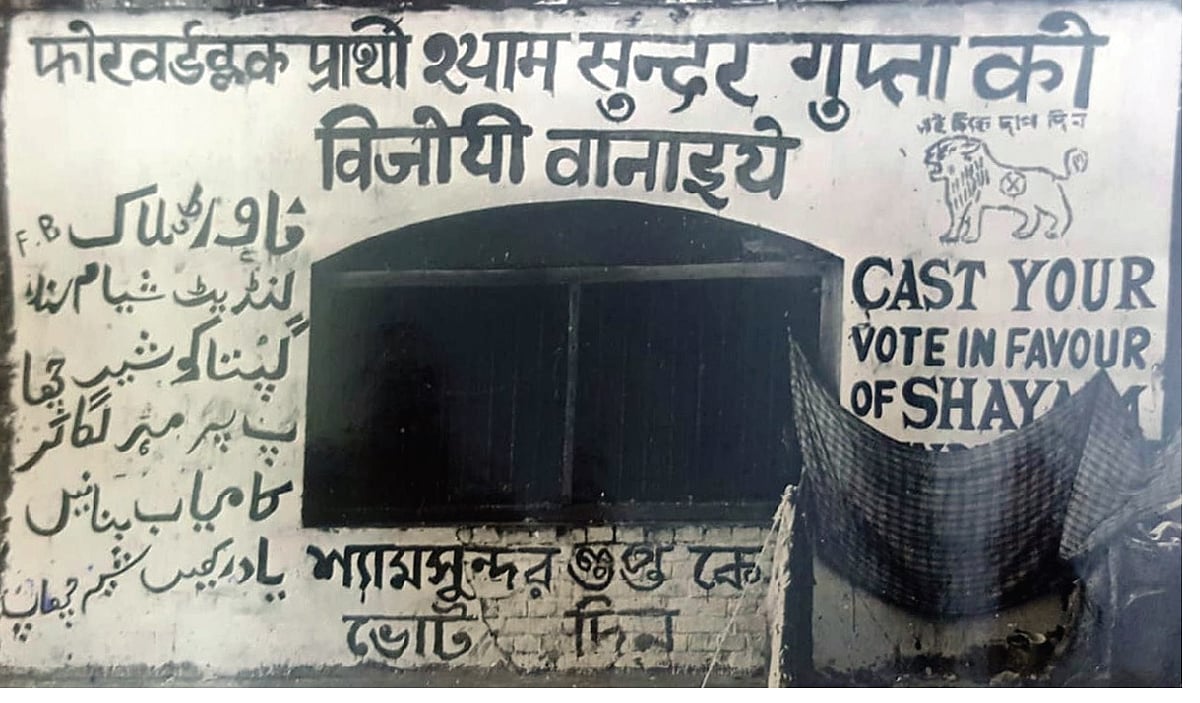 फोरवर्डब्लक प्रार्थी श्याम सुन्दर गुप्ता को
विजोयी वानाइये
এই চিহ্নে ছাপ দিন
فاورڈ بلاک F.B
کنڈیٹ شیام سندر
گپتا کو شیر چھا
پ پر مہر لگا کر
کامیاب بنائیں
یاد رکھیں شیر چھاپ
CAST YOUR
VOTE IN FAVOUR
OF SHAYAM
শ্যামসুন্দর গুপ্ত কে
ভোট দিন